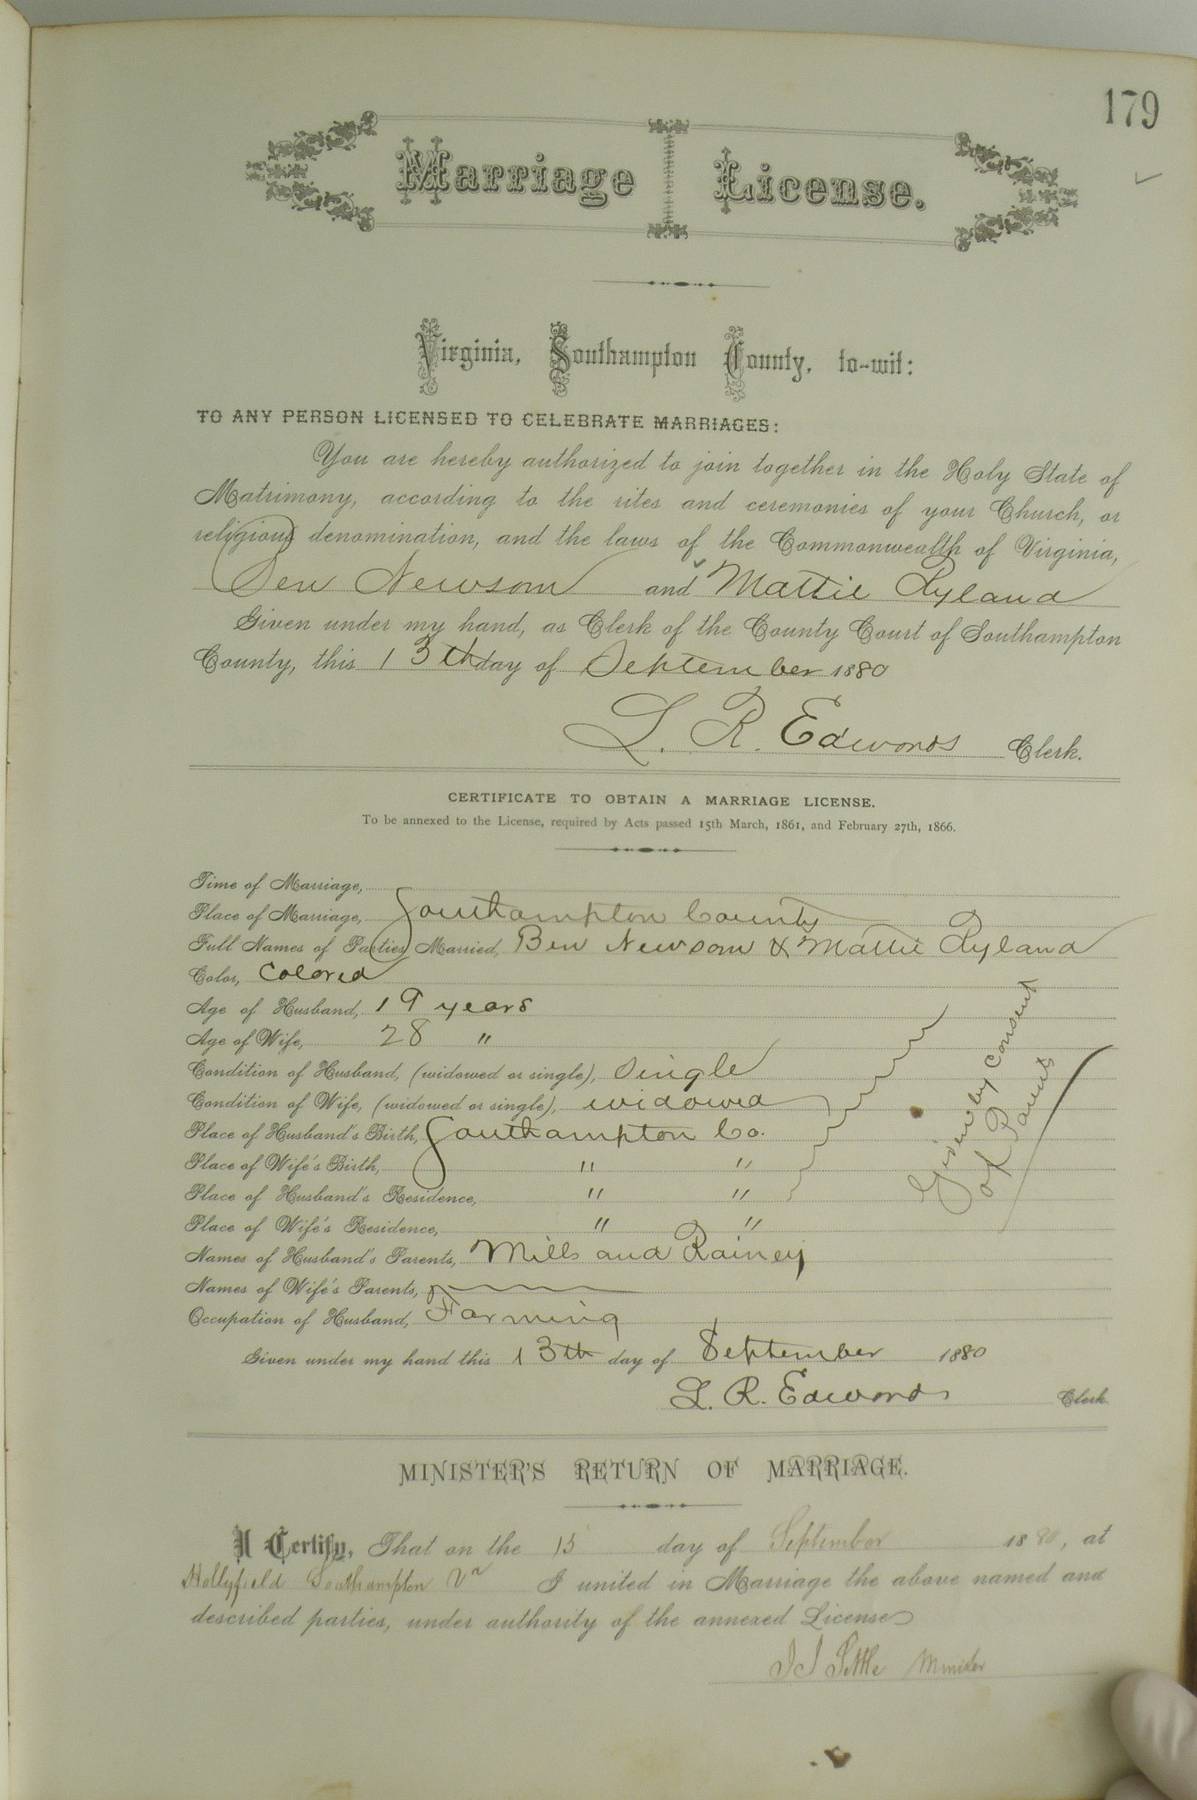 179
Marriage License.
Virginia, Southampton County, to-wit:
TO ANY PERSON LICENSED TO CELEBRATE MARRIAGES:
You are hereby authorized to join together in the Holy State of
Matrimony, according to the rites and ceremonies of your Church, or
religious denomination, and the laws of the Commonwealth of Virginia,
Ben Newsom and Mattie Ryland
Given under my hand, as Clerk of the County Court of Southampton
County, this 13th day of September 1880
L. R. Edwards Clerk.
CERTIFICATE TO OBTAIN A MARRIAGE LICENSE.
To be annexed to the License, required by Acts passed 15th March, 1861, and February 27th, 1866.
Time of Marriage,
Place of Marriage, Southampton County
Full Names of Parties Married, Ben Newsom & Mattie Ryland
Color, Colored
Age of Husband, 19 years
Age of Wife, 28 "
Condition of Husband, (widowed or single), Single
Condition of Wife, (widowed or single), widowed
Place of Husband's Birth, Southampton Co.
Place of Wife's Birth, " "
Place of Husband's Residence, " "
Place of Wife's Residence, " "
Given by consent
of Parents
Names of Husband's Parents, Mills and Rainey
Names of Wife's Parents,
Occupation of Husband, Farming
Given under my hand this 13th day of September 1880
L. R. Edwards Clerk.
MINISTER'S RETURN OF MARRIAGE.
I Certify, That on the 15 day of September 1880, at
Hollyfield Southampton Va I united in Marriage the above named and
described parties, under authority of the annexed License
Minister